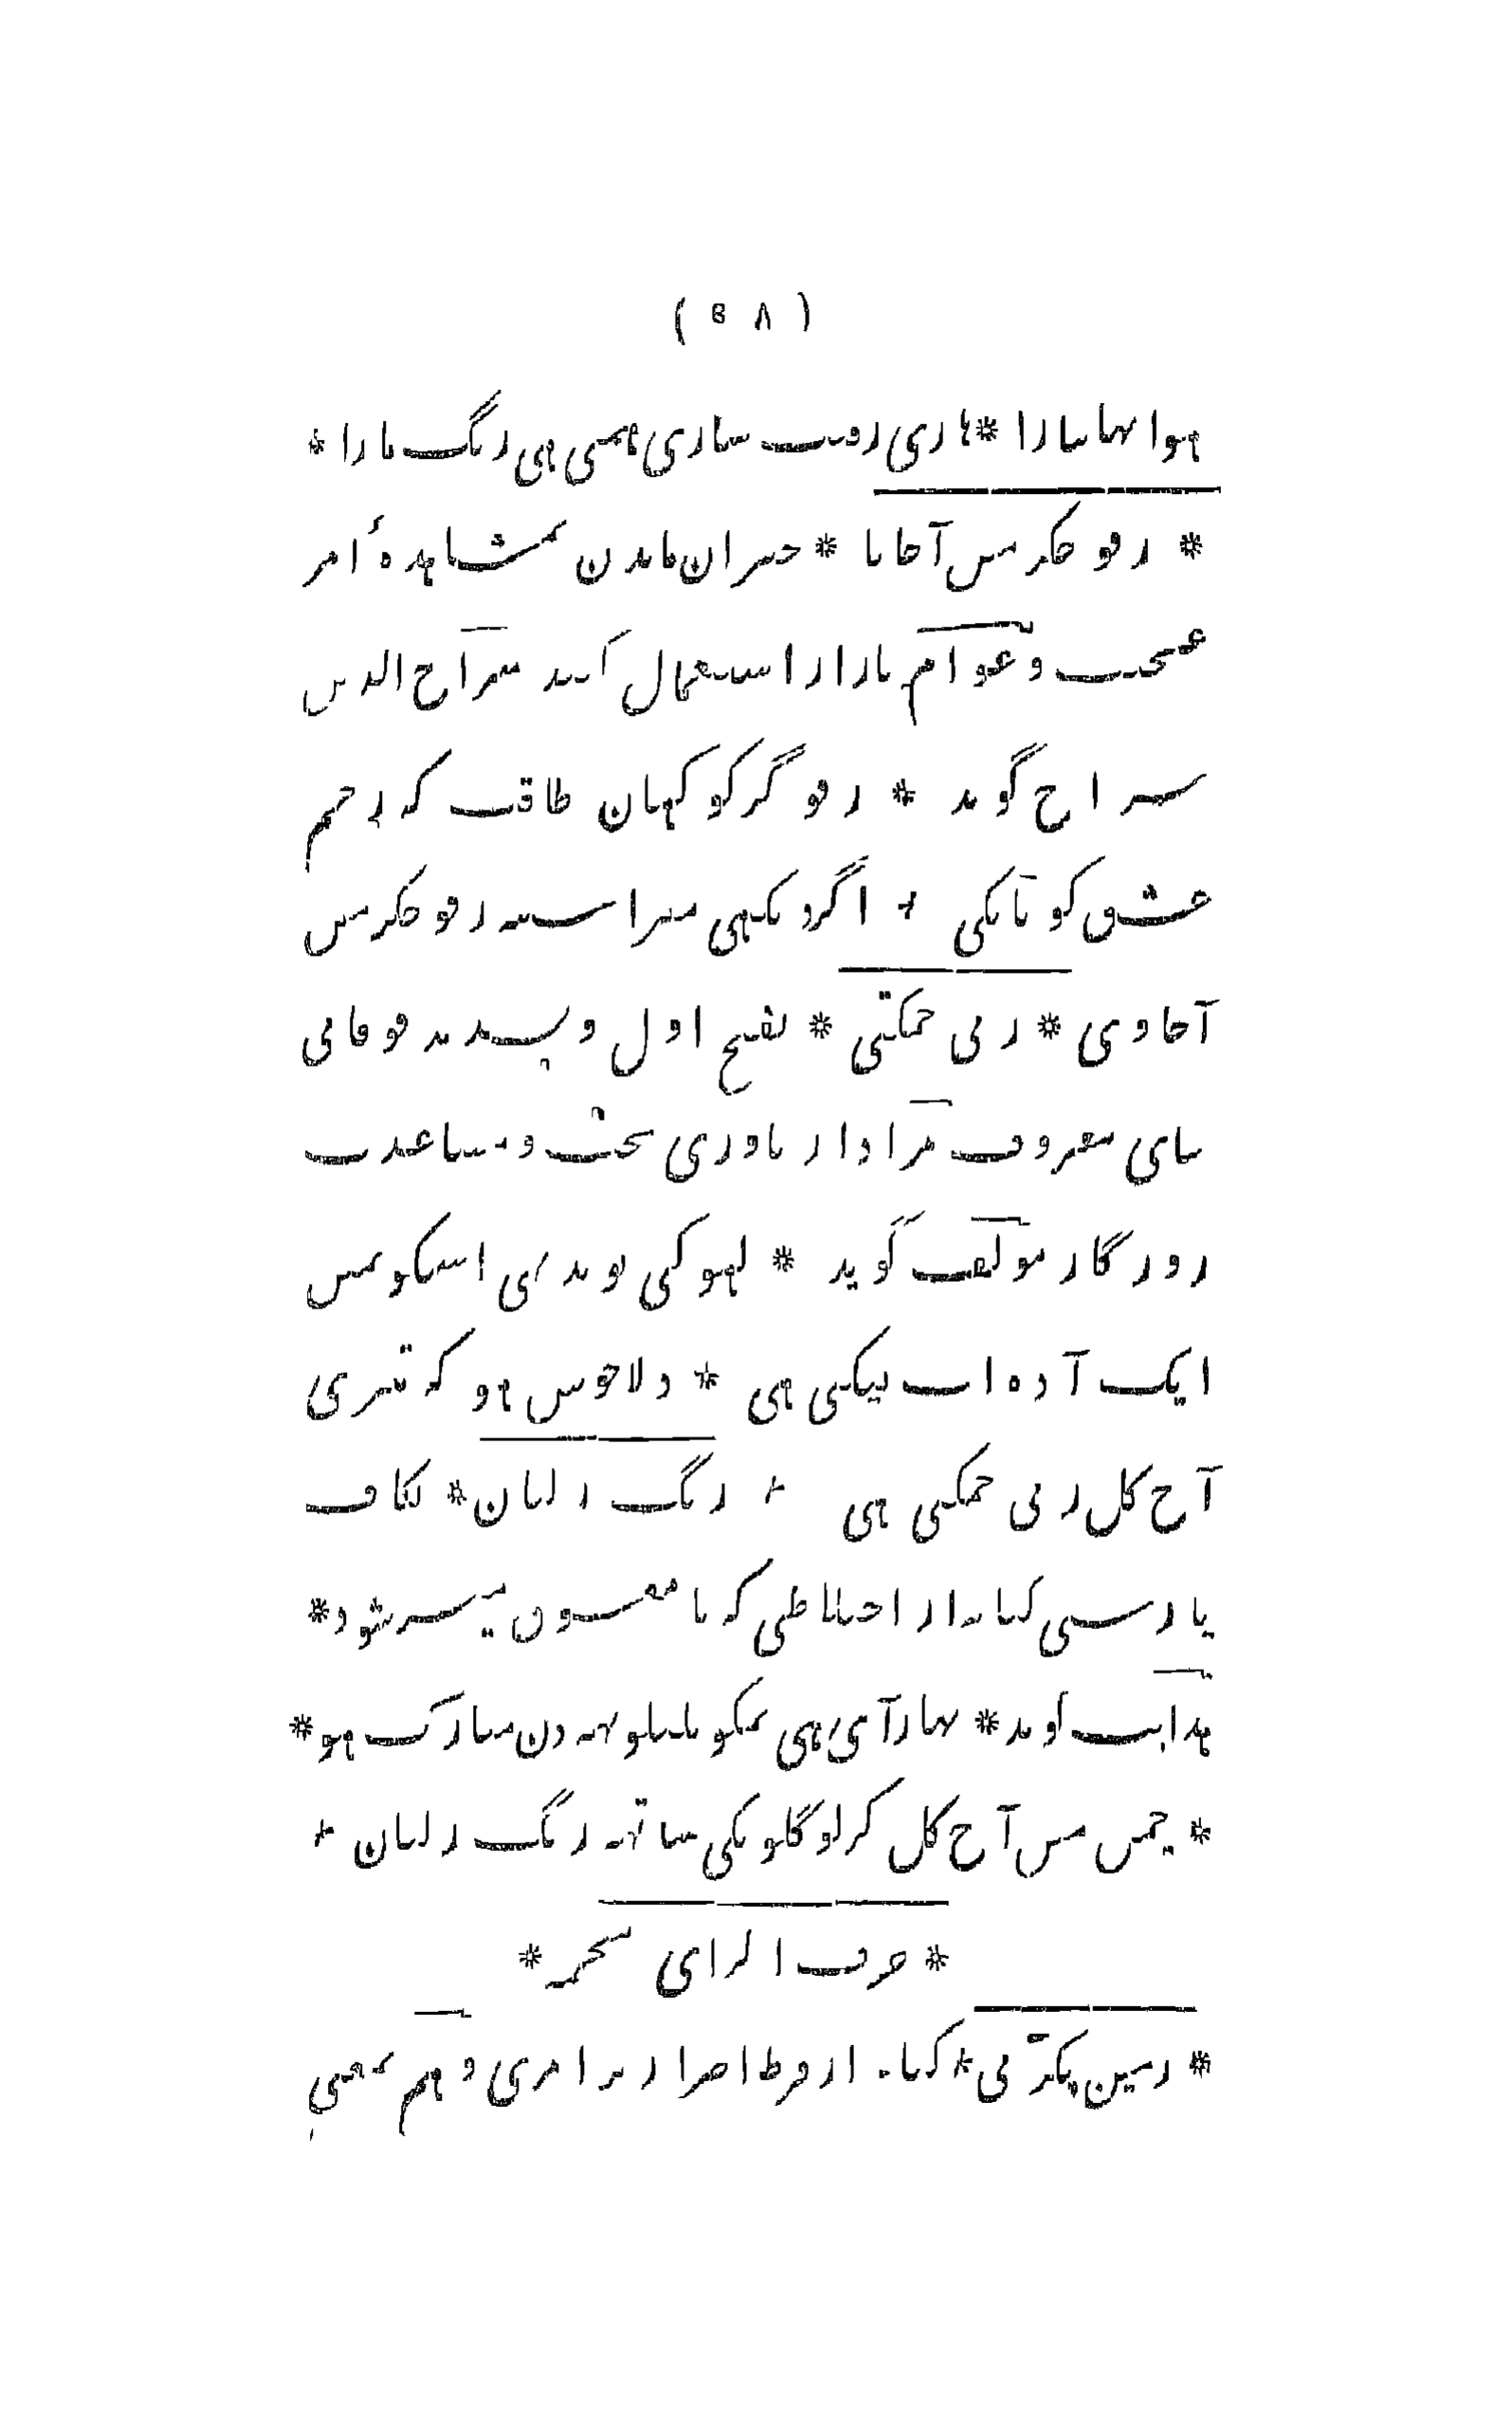 ( ٥٨ )
ہوا تہا سارا * ہاری روپ ساری ہمسی ہی رنگ مارا *
* رفو چکر میں آجانا * حیران ماندن بمشاہدۂ امر
عجیب و عوام بازار استعمال کنند سراج الدین
سراج گوید * رفوگر کو کہان طاقت کہ زخم
عشق کو ٹانکی * اگر دیکہی میرا سینہ رفو چکر میں
آجاوی * رتی چمکتی * بفتح اول و تشدید فوقانی
بیای معروف مراد از یاوری بخت و مساعدت
روزگار مؤلف گوید * لہو کی بوند ہی اسکو میں
ایک آدہ اب ٹپکی ہی * دلا خوش ہو کہ تیری
آج کل رتی چمکی ہی * رنگ رلیان * بکاف
پارسی کنایہ از اختلاطی کہ با معشوق میسر شود *
ہدایت گوید * بہار آئی ہی تمکو بلبلو یہہ دن مبارک ہو *
* چمن میں آج کل کرلو گلونکی ساتہہ رنگ رلیان *
* حرف الزای معجمہ *
* زمین پکڑنی * کنایہ از فرط اصرار بر امری و ہم بمعنی